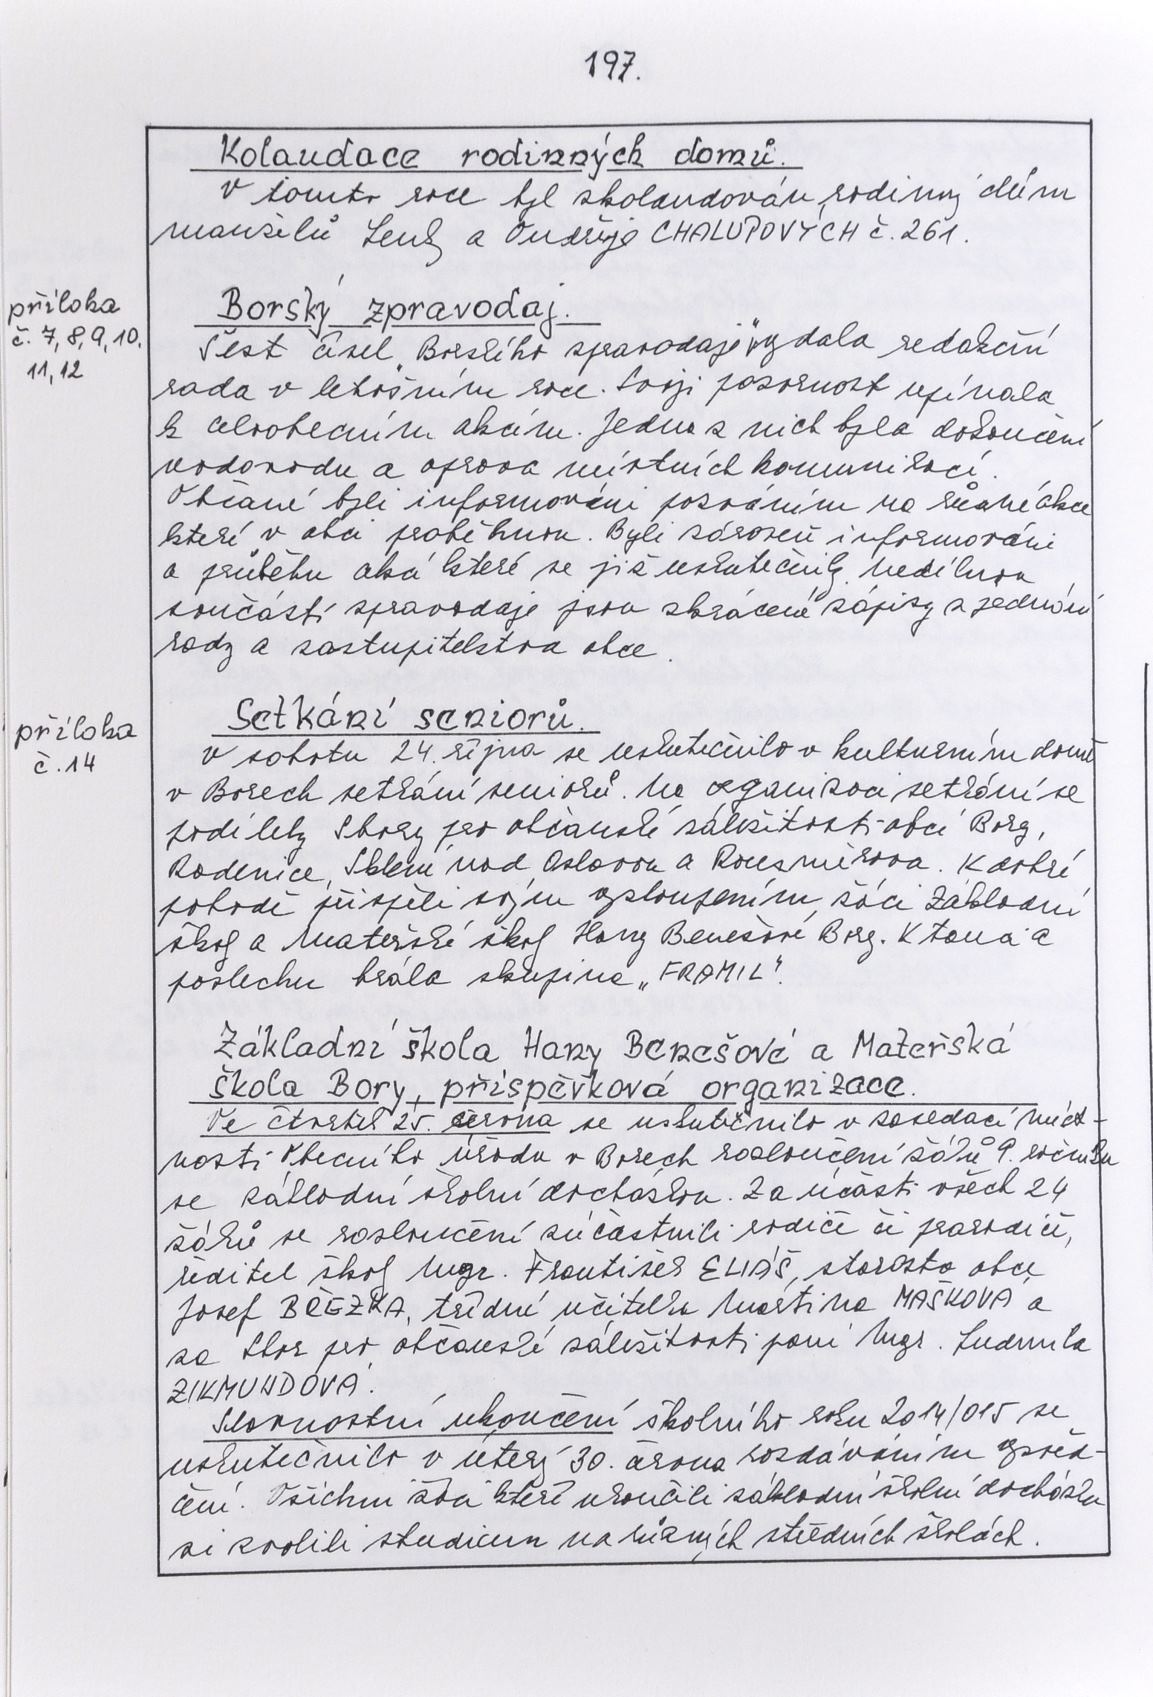 197.
Kolaudace rodinných domů.
V tomto roce byl zkolaudován rodinný dům
manželů Lenky a Ondřeje CHALUPOVÝCH č. 261.
příloha
č. 7, 8, 9, 10,
11, 12
Borský zpravodaj.
Šest čísel „Borského zpravodaje" vydala redakční
rada v letošním roce. Svoji pozornost upínala
k celoobecním akcím. Jedna z nich byla dokončení
vodovodu a oprava místních komunikací.
Občané byli informováni pozváním na různé akce
které v obci proběhnou. Byli zároveň informováni
o průběhu akcí které se již uskutečnily. Nedílnou
součástí zpravodaje jsou zkrácené zápisy z jednání
rady a zastupitelstva obce.
příloha
č. 14
Setkání seniorů.
V sobotu 24. října se uskutečnilo v kulturním domě
v Borech setkání seniorů. Na organizaci setkání se
podílely Sbory pro občanské záležitosti obcí Bory,
Radenice, Sklené nad Oslavou a Rousměrova. K dobré
pohodě přispěli svým vystoupením žáci Základní
školy a Mateřské školy Hany Benešové Bory. K tanci a
poslechu hrála skupina „FRAMIL".
Základní škola Hany Benešové a Mateřská
škola Bory, příspěvková organizace.
Ve čtvrtek 25. června se uskutečnilo v zasedací míst-
nosti Obecního úřadu v Borech rozloučení žáků 9. ročníku
se základní školní docházkou. Za účasti všech 24
žáků se rozloučení zúčastnili rodiče či prarodiče,
ředitel školy Mgr. František ELIÁŠ, starosta obce
Josef BŘEZKA, třídní učitelka Martina MAŠKOVÁ a
za Sbor pro občanské záležitosti paní Mgr. Ludmila
ZIKMUNDOVÁ.
Slavnostní ukončení školního roku 2014/015 se
uskutečnilo v úterý 30. června rozdáváním vysvěd-
čení. Všichni žáci kteří ukončili základní školní docházku
si zvolili studium na různých středních školách.